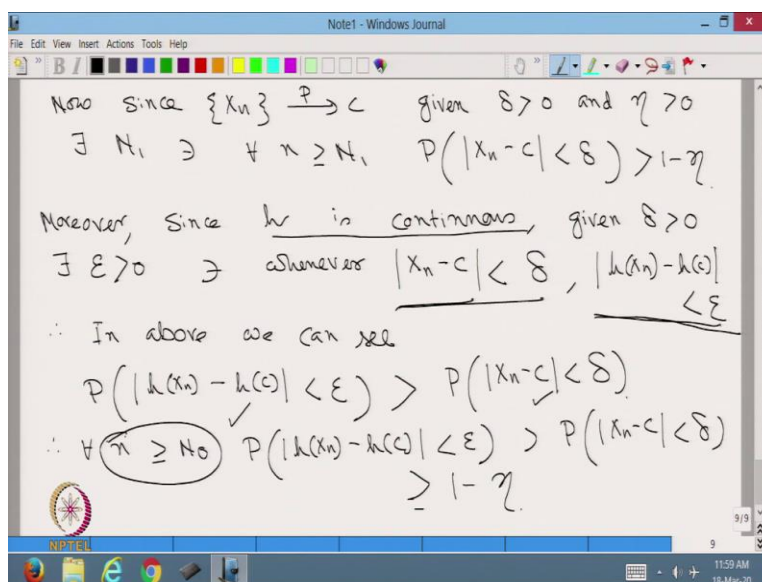 Note1 - Windows Journal
File Edit View Insert Actions Tools Help
B I
Now since {Xn} P→ c given δ>0 and η>0
∃ N₁ ∋ ∀ n ≥ N₁ P(|Xn-c| < δ) > 1-η
Moreover, since h is continuous, given δ>0
∃ ε>0 ∋ whenever |Xn-c| < δ, |h(Xn) - h(c)|
< ε
∴ In above we can see
P(|h(Xn) - h(c)| < ε) > P(|Xn-c| < δ)
∴ ∀ n ≥ No P(|h(Xn) - h(c)| < ε) > P(|Xn-c| < δ)
≥ 1-η.
NPTEL
9/9
9
11:59 AM
18-Mar-20